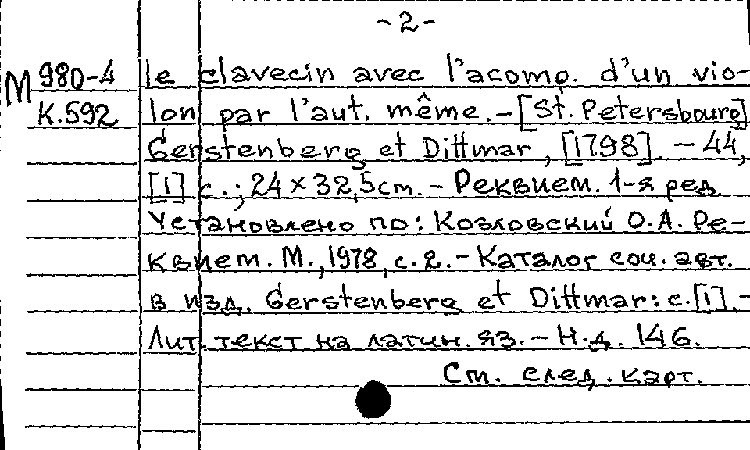 -2-
М 980-4 le clavecin avec l'acomp. d'un vio-
К.592 lon par l'aut. même. - [St. Petersbourg]
Gerstenberg et Dittmar, [1798]. - 44,
[1] с.; 24 × 32,5 cm. - Реквием. 1-я ред.
Установлено по: Козловский О.А. Ре-
квием. М., 1978, с. 2. - Каталог соч. авт.
в изд. Gerstenberg et Dittmar: с. [1]. -
Лит. текст на латин. яз. - Н.д. 146.
См. след. карт.